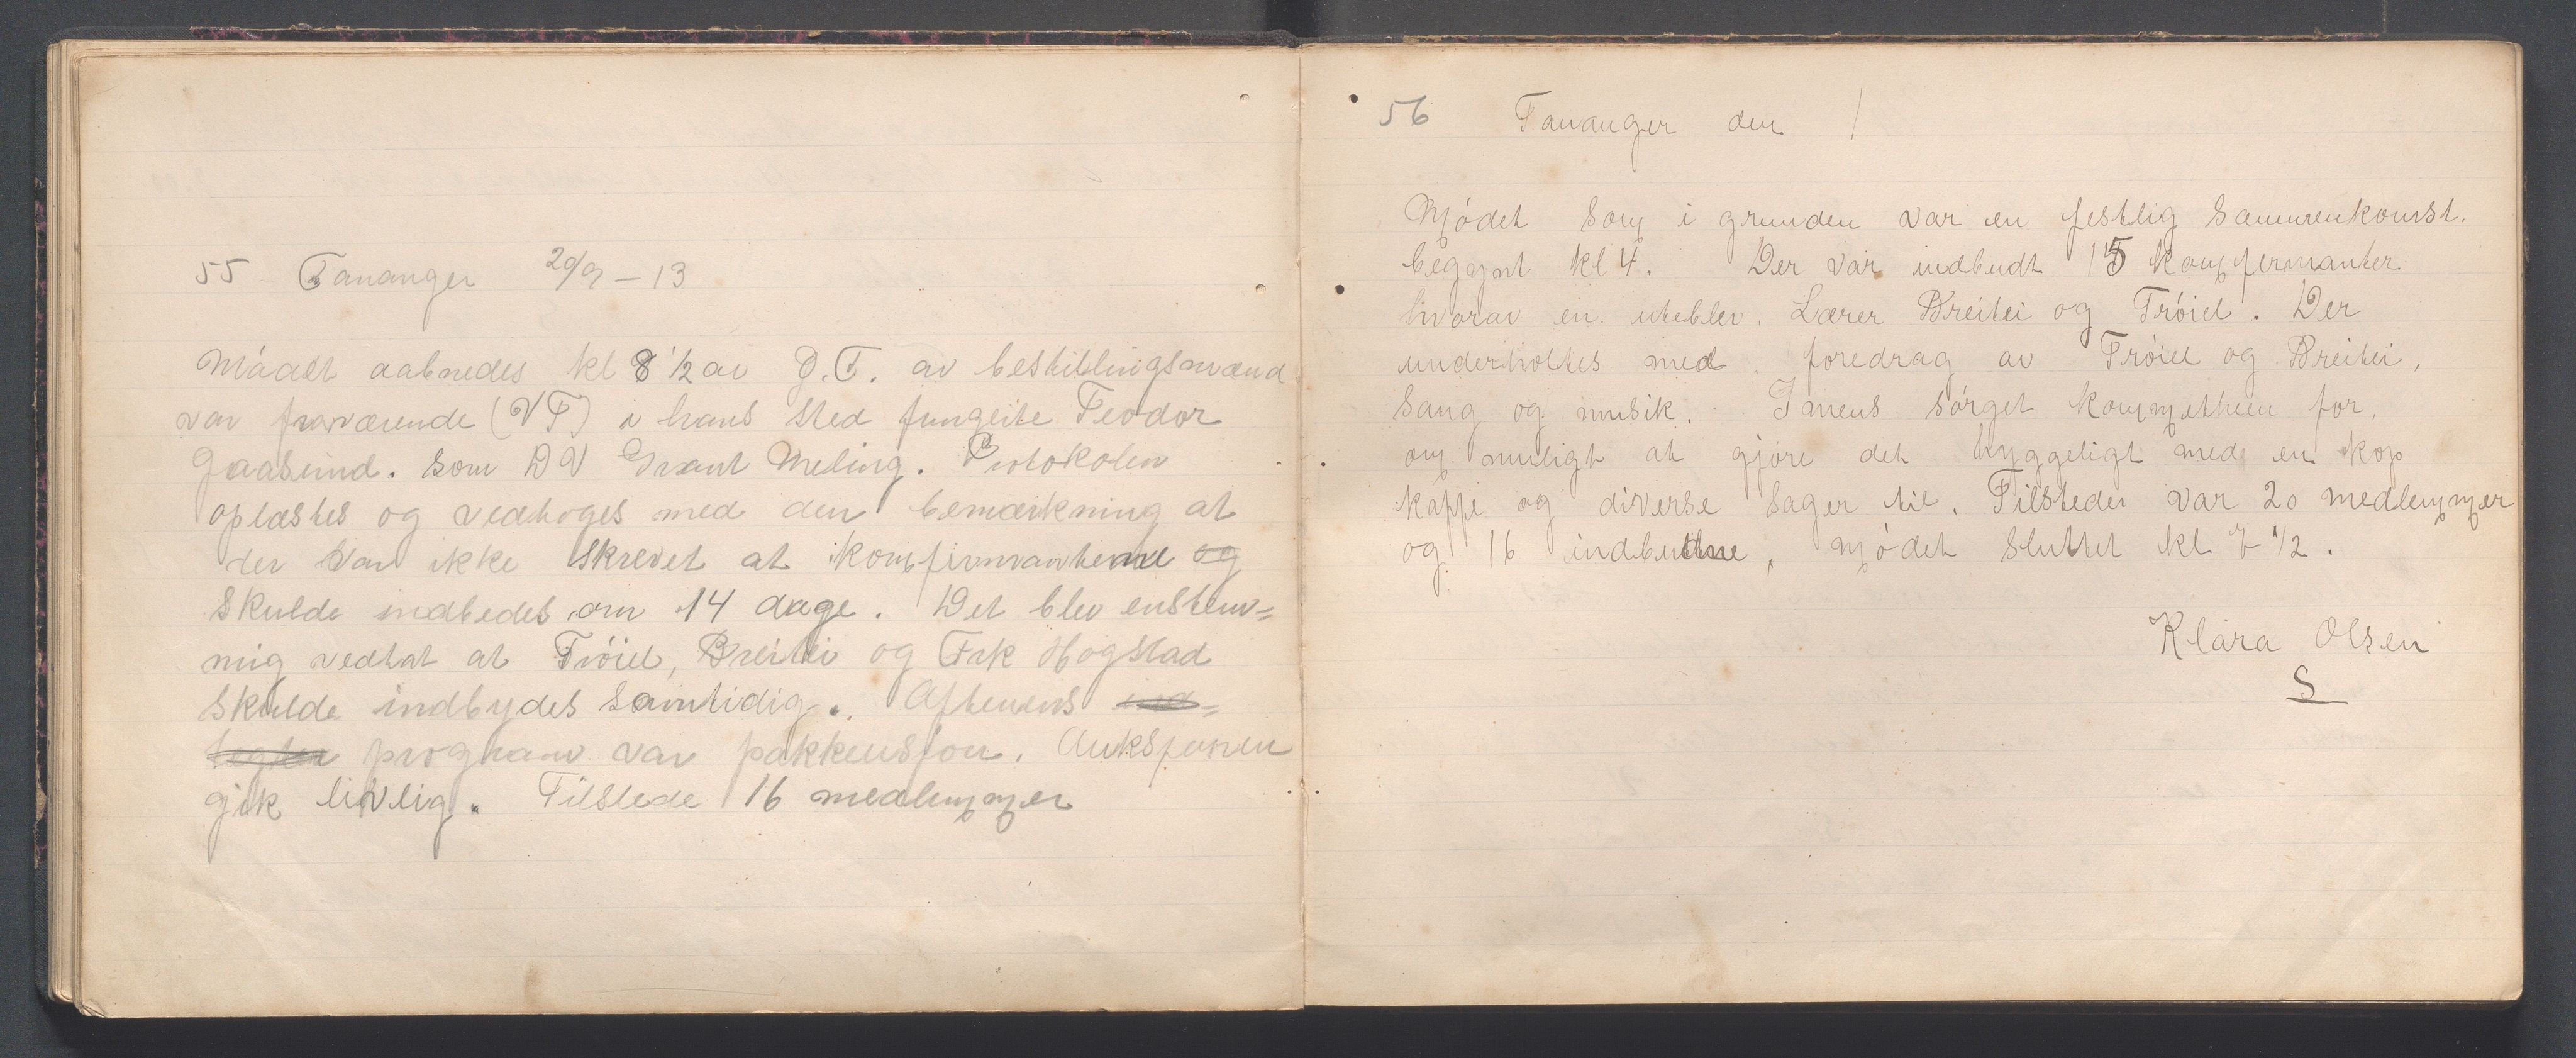 55 Tananger 20/9 - 13
Måadt aabnedes kl 8 1/2 av G.T. av bestillingsmænd
var fraværende (VT) i hans sted fungerte Teodor
Gaasund. Som DV Grant Meling. Protokolen
oplæstes og vedtoges med den bemærkning at
der var ikke skrevet at konfirmanterne og
skulde indbedes om 14 dage. Det blev enstem=
mig vedtat at Trøiel, Breitei og Frk Hogstad
skulde indbydes samtidig. Aftenens ind=
tegter program var pakkeusjon. Auksjonen
gik livlig. Tilstede 16 medlemmer
56 Tananger den /
Mødet som i grunden var en festlig sammenkomst.
begynt kl 4. Der var indbudt 15 konfirmanter
hvorav en uteblev. Lærer Breitei og Trøiel. Der
underholtes med foredrag av Trøiel og Breitei,
sang og musik. Imens sørget kommetheen for,
om muligt at gjøre det hyggeligt mede en kop
kaffe og diverse sager til. Tilsteder var 20 medlemmer
og 16 indbudne, mødet sluttet kl 7 1/2.
Klara Olsen
S